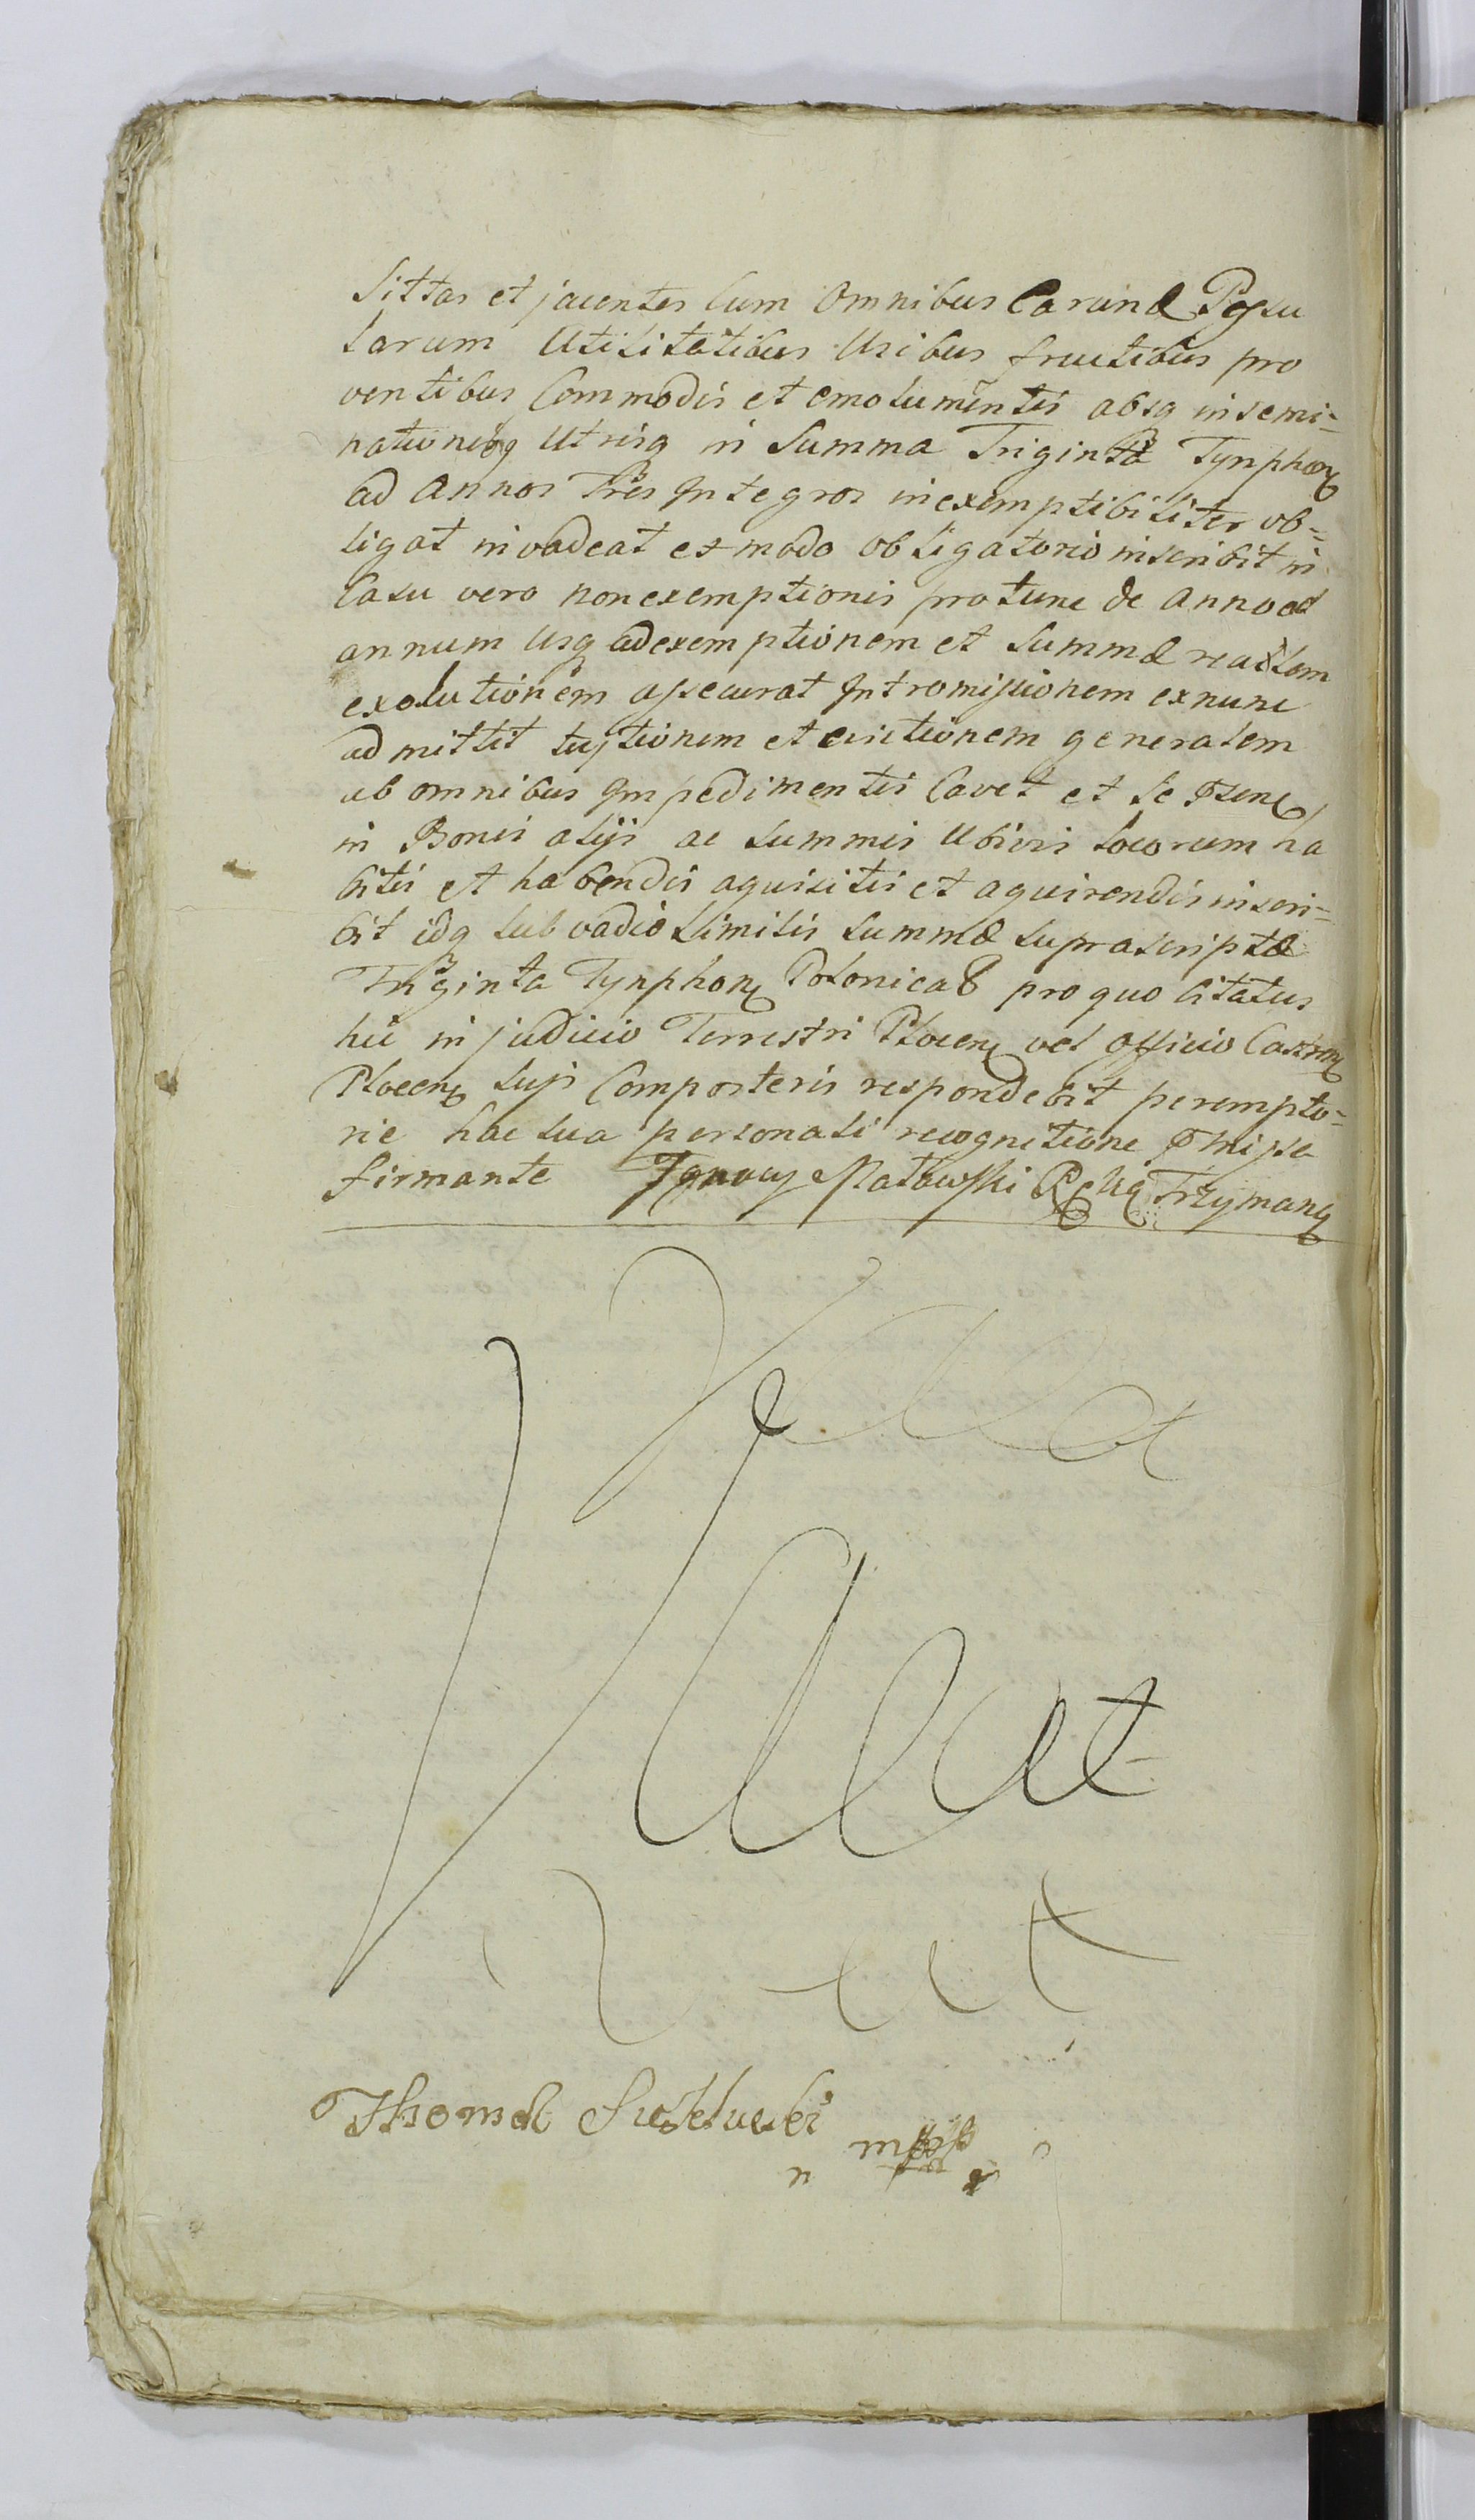 Sittas et jacentes Cum Omnibus Earund Pesu
larum Utilitatibus Usibus fructibus pro
ventibus Commodis et emolumentis absq insemi=
nationeq Utrisq in Summa Triginta Tynphon
ad Annos Tres Integros inexemptibiliter ob=
ligat invadeat et modo obligatorio inscribit in
Casu vero non exemptionis pro tunc de Anno ad
annum Usq ad exemptionem et Summæ realem
exolutionem assecurat Intromissionem ex nunc
admittit tuitionem et evictionem generalem
ab omnibus Impedimentis Cavet et Se
in Bonis alijs ac Summis Ubivis locorum ha
bitis et habendis aquisitis et aquirendis inscri=
bit idq Sub vadio Similis Summæ Suprascriptæ
Triginta Tynphon Polonical pro quo Citatus
hic in judicio Terrestri Plocen vel Officio Castren
Plocen Susi Comporteris respondebit perempto=
rie hac Sua personali recognitione
firmante Ignacy Małowski Ręką Trzymaną
Thomas